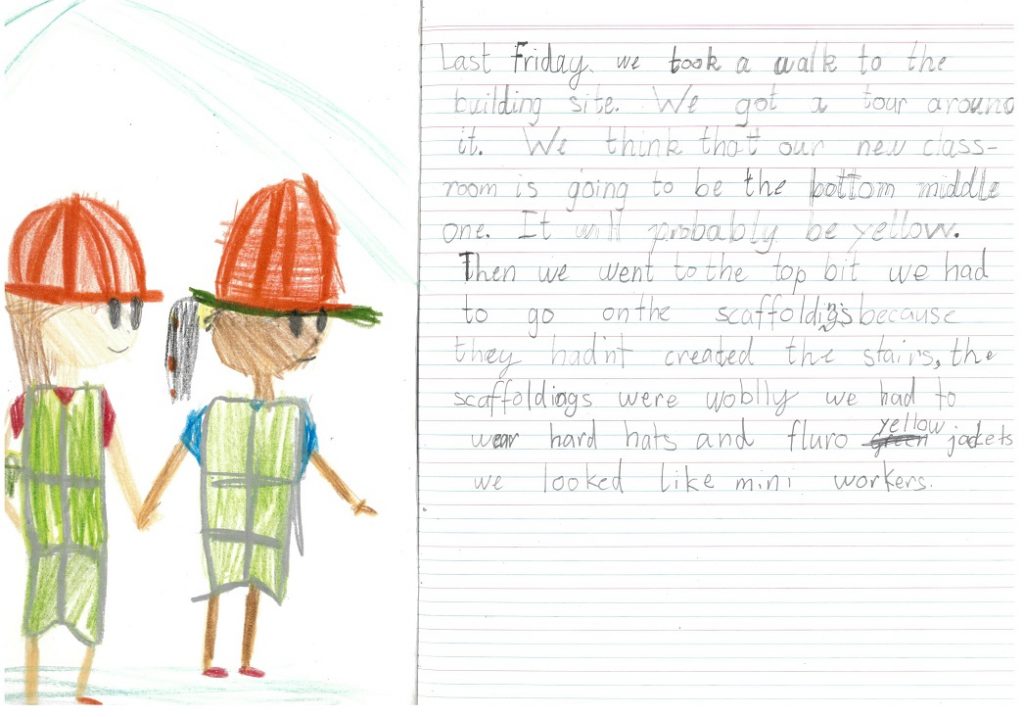 Last Friday. we took a walk to the
building site. We got a tour around
it. We think that our new class-
room is going to be the bottom middle
one. It will probably be yellow.
Then we went to the top bit we had
to go on the scaffoldings because
they had'nt created the stairs, the
scaffoldings were woblly we had to
wear hard hats and fluro yellow jackets
we looked like mini workers.